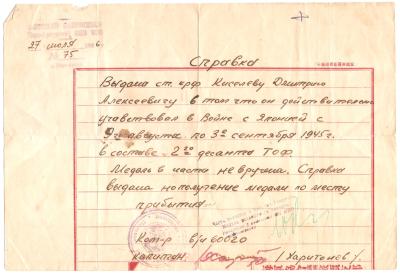 27 июля
№ 75
Справка
Выдана ст. ефр Киселеву Дмитрию
Алексеевичу в том что он действительно
участвовал в Войне с Японией с
9го августа по 3е сентября 1945г.
в составе 2го десанта ТОФ
Медаль в части не вручена. Справка
выдана на получение медали по месту
прибытия.
Ком-р в/ч 60020
капитан /Харитонов/